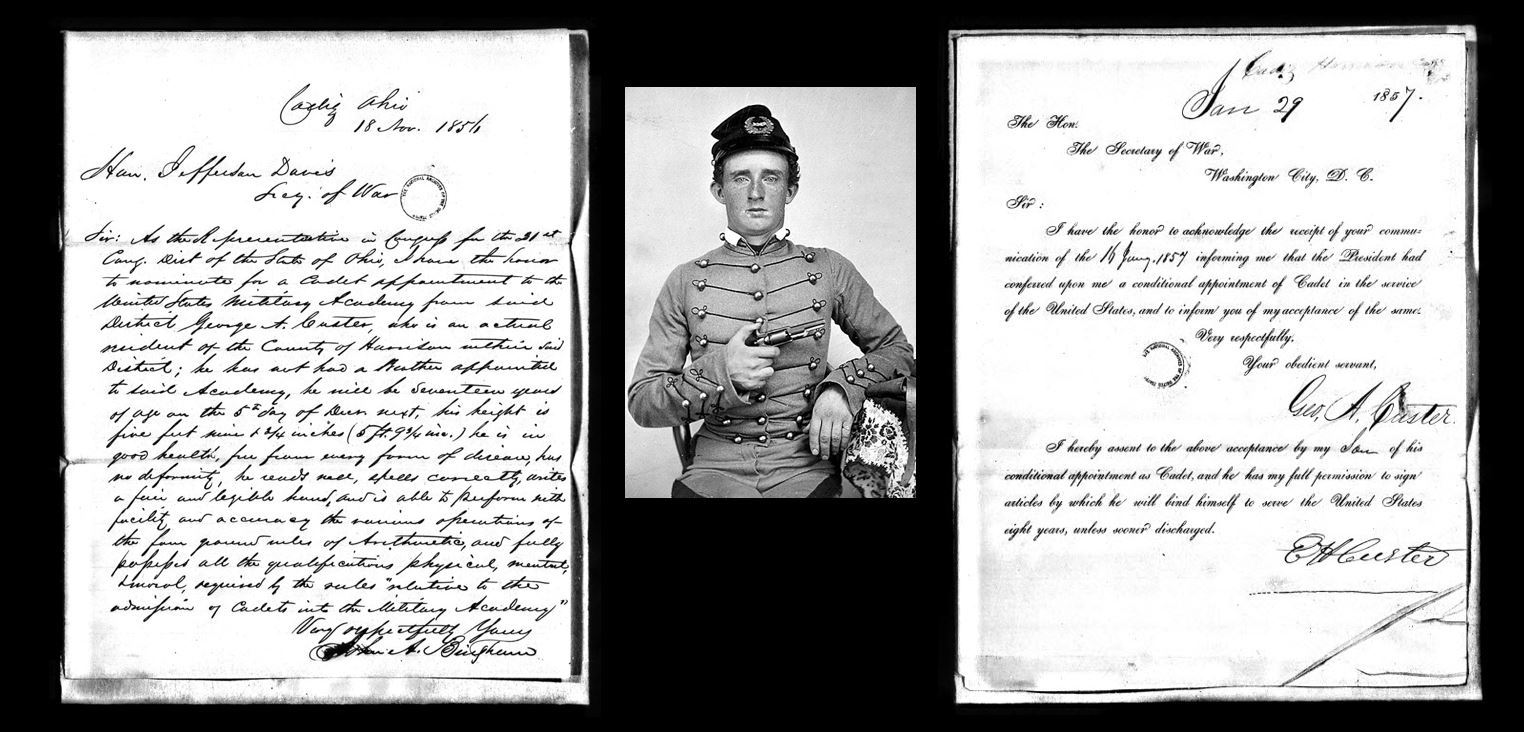 Cadiz Ohio
18 Nov. 1856
Hon. Jefferson Davis
Secy. of War
Sir: As the Representative in Congress for the 21st
Cong. Dist of the State of Ohio, I have the honor
to nominate for a Cadet appointment to the
United States Military Academy from said
District, George A. Custer, who is an actual
resident of the County of Harrison within said
District; he has not had a Brother appointed
to said Academy, he will be Seventeen years
of age on the 5th day of Decr next, his height is
five feet nine & 3/4 inches (5 ft. 9 3/4 inc.) he is in
good health, free from every form of disease, has
no deformity, he reads well, spells correctly, writes
a fair and legible hand, and is able to perform with
facility and accuracy the various operations of
the four ground rules of Arithmetic, and fully
possesses all the qualifications physical, mental,
& moral, required by the rules "relative to the
admission of Cadets into the Military Academy"
Very respectfully Yours
John A. Bingham
Cadiz Harrison
Jan 29 1857.
The Hon.
The Secretary of War,
Washington City, D. C.
Sir:
I have the honor to acknowledge the receipt of your commu-
nication of the 16 Jany. 1857 informing me that the President had
conferred upon me a conditional appointment of Cadet in the service
of the United States, and to inform you of my acceptance of the same.
Very respectfully,
Your obedient servant,
Geo. A. Custer.
I hereby assent to the above acceptance by my Son of his
conditional appointment as Cadet, and he has my full permission to sign
articles by which he will bind himself to serve the United States
eight years, unless sooner discharged.
E H Custer